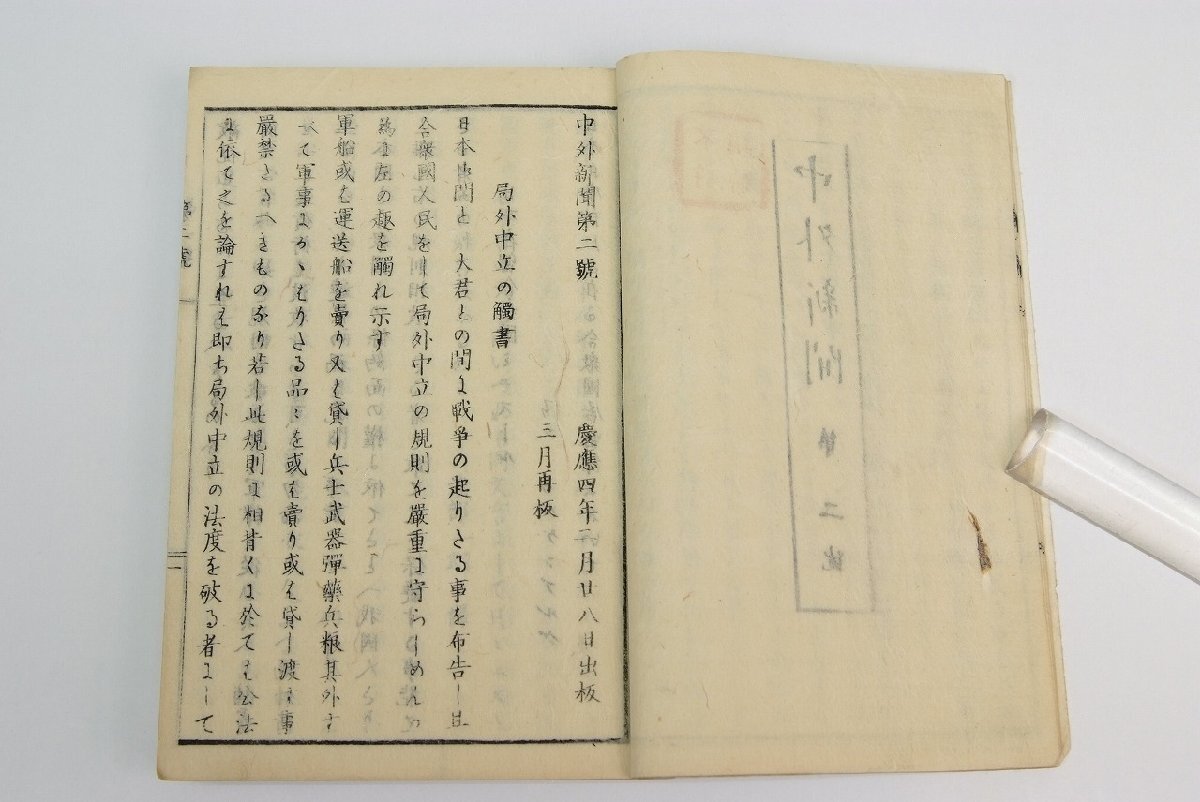 中外新聞第二號　慶應四年二月廿八日出板
三月再板
局外中立の觸書
日本御門と大君との間に戦争の起りたる事を布告し且
合衆國人民をして局外中立の規則を嚴重に守らしめんか
為に左の趣を觸れ示す
軍船或は運送船を賣り又は貸し兵士武器彈藥兵粮其外す
へて軍事にかゝはりたる品々を或は賣り或は貸し渡す事
嚴禁たるへきものなり若し此規則に相背くに於ては公法
に依て之を論すれは即ち局外中立の法度を破る者にして
第二號
一
中外新聞 第二號